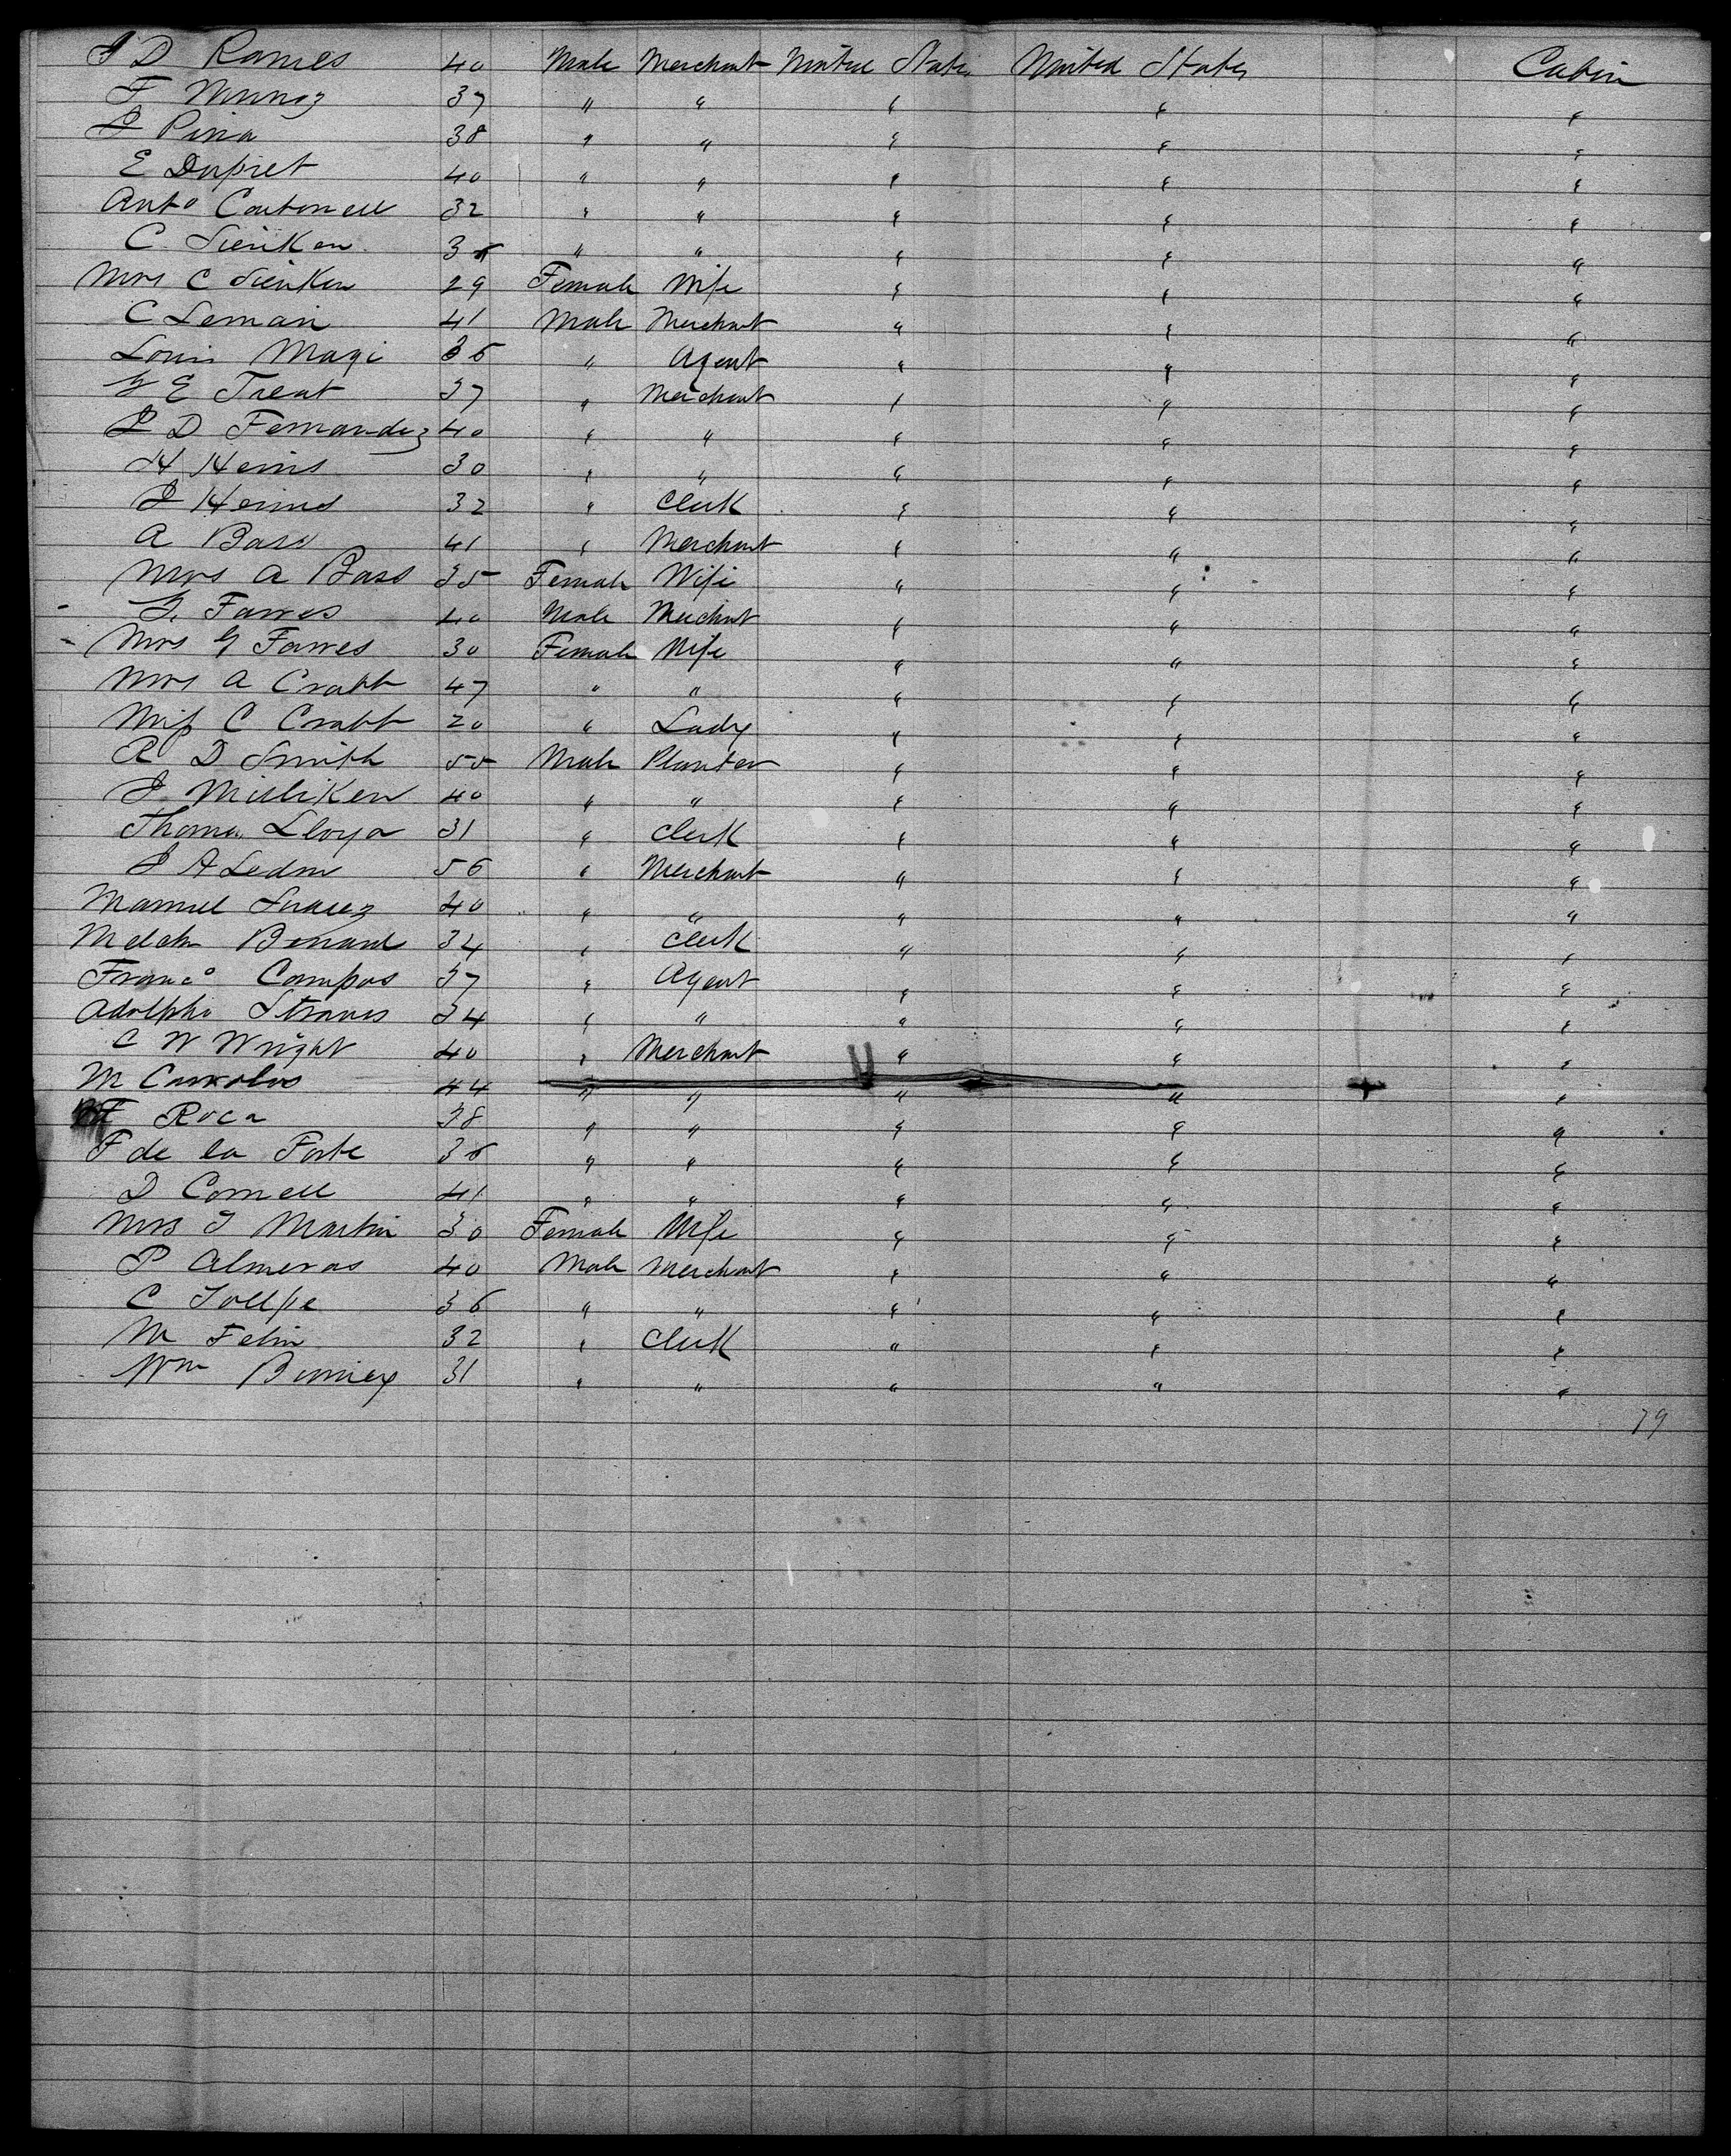 J D Rames 40 Male Merchant United States United States Cabin
F Munoz 37 " " " " "
J Pina 38 " " " " "
E Dupiet 40 " " " " "
Anto Carbonell 32 " " " " "
C. Sienken 36 " " " " "
Mrs C Sienken 29 Female Wife " " "
C Leman 41 Male Merchant " " "
Louis Magi 36 " Agent " " "
G E Treat 37 " Merchant " " "
J D Fernandez 40 " " " " "
H Heins 30 " " " " "
J Heins 32 " Clerk " " "
A Bass 41 " Merchant " " "
Mrs A Bass 35 Female Wife " " "
G. Farres 40 Male Merchant " " "
Mrs G Farres 30 Female Wife " " "
Mrs A Crabb 47 " " " " "
Miss C Crabb 20 " Lady " " "
R D Smith 55 Male Planter " " "
J Milliken 40 " " " " "
Thomas Lloyd 31 " Clerk " " "
J A Ledon 56 " Merchant " " "
Manuel Suarez 40 " " " " "
Melchr Benard 34 " Clerk " " "
Franco Campos 37 " Agent " " "
Adolpho Straus 34 " " " " "
C W Wright 40 " Merchant " " "
M 44 " " " " "
F Roca 38 " " " " "
F de la Forte 36 " " " " "
D Cornell 41 " " " " "
Mrs J Martin 30 Female Wife " " "
P Almeras 40 Male Merchant " " "
C 36 " " " " "
M Felin 32 " Clerk " " "
Wm 31 " " " " "
79